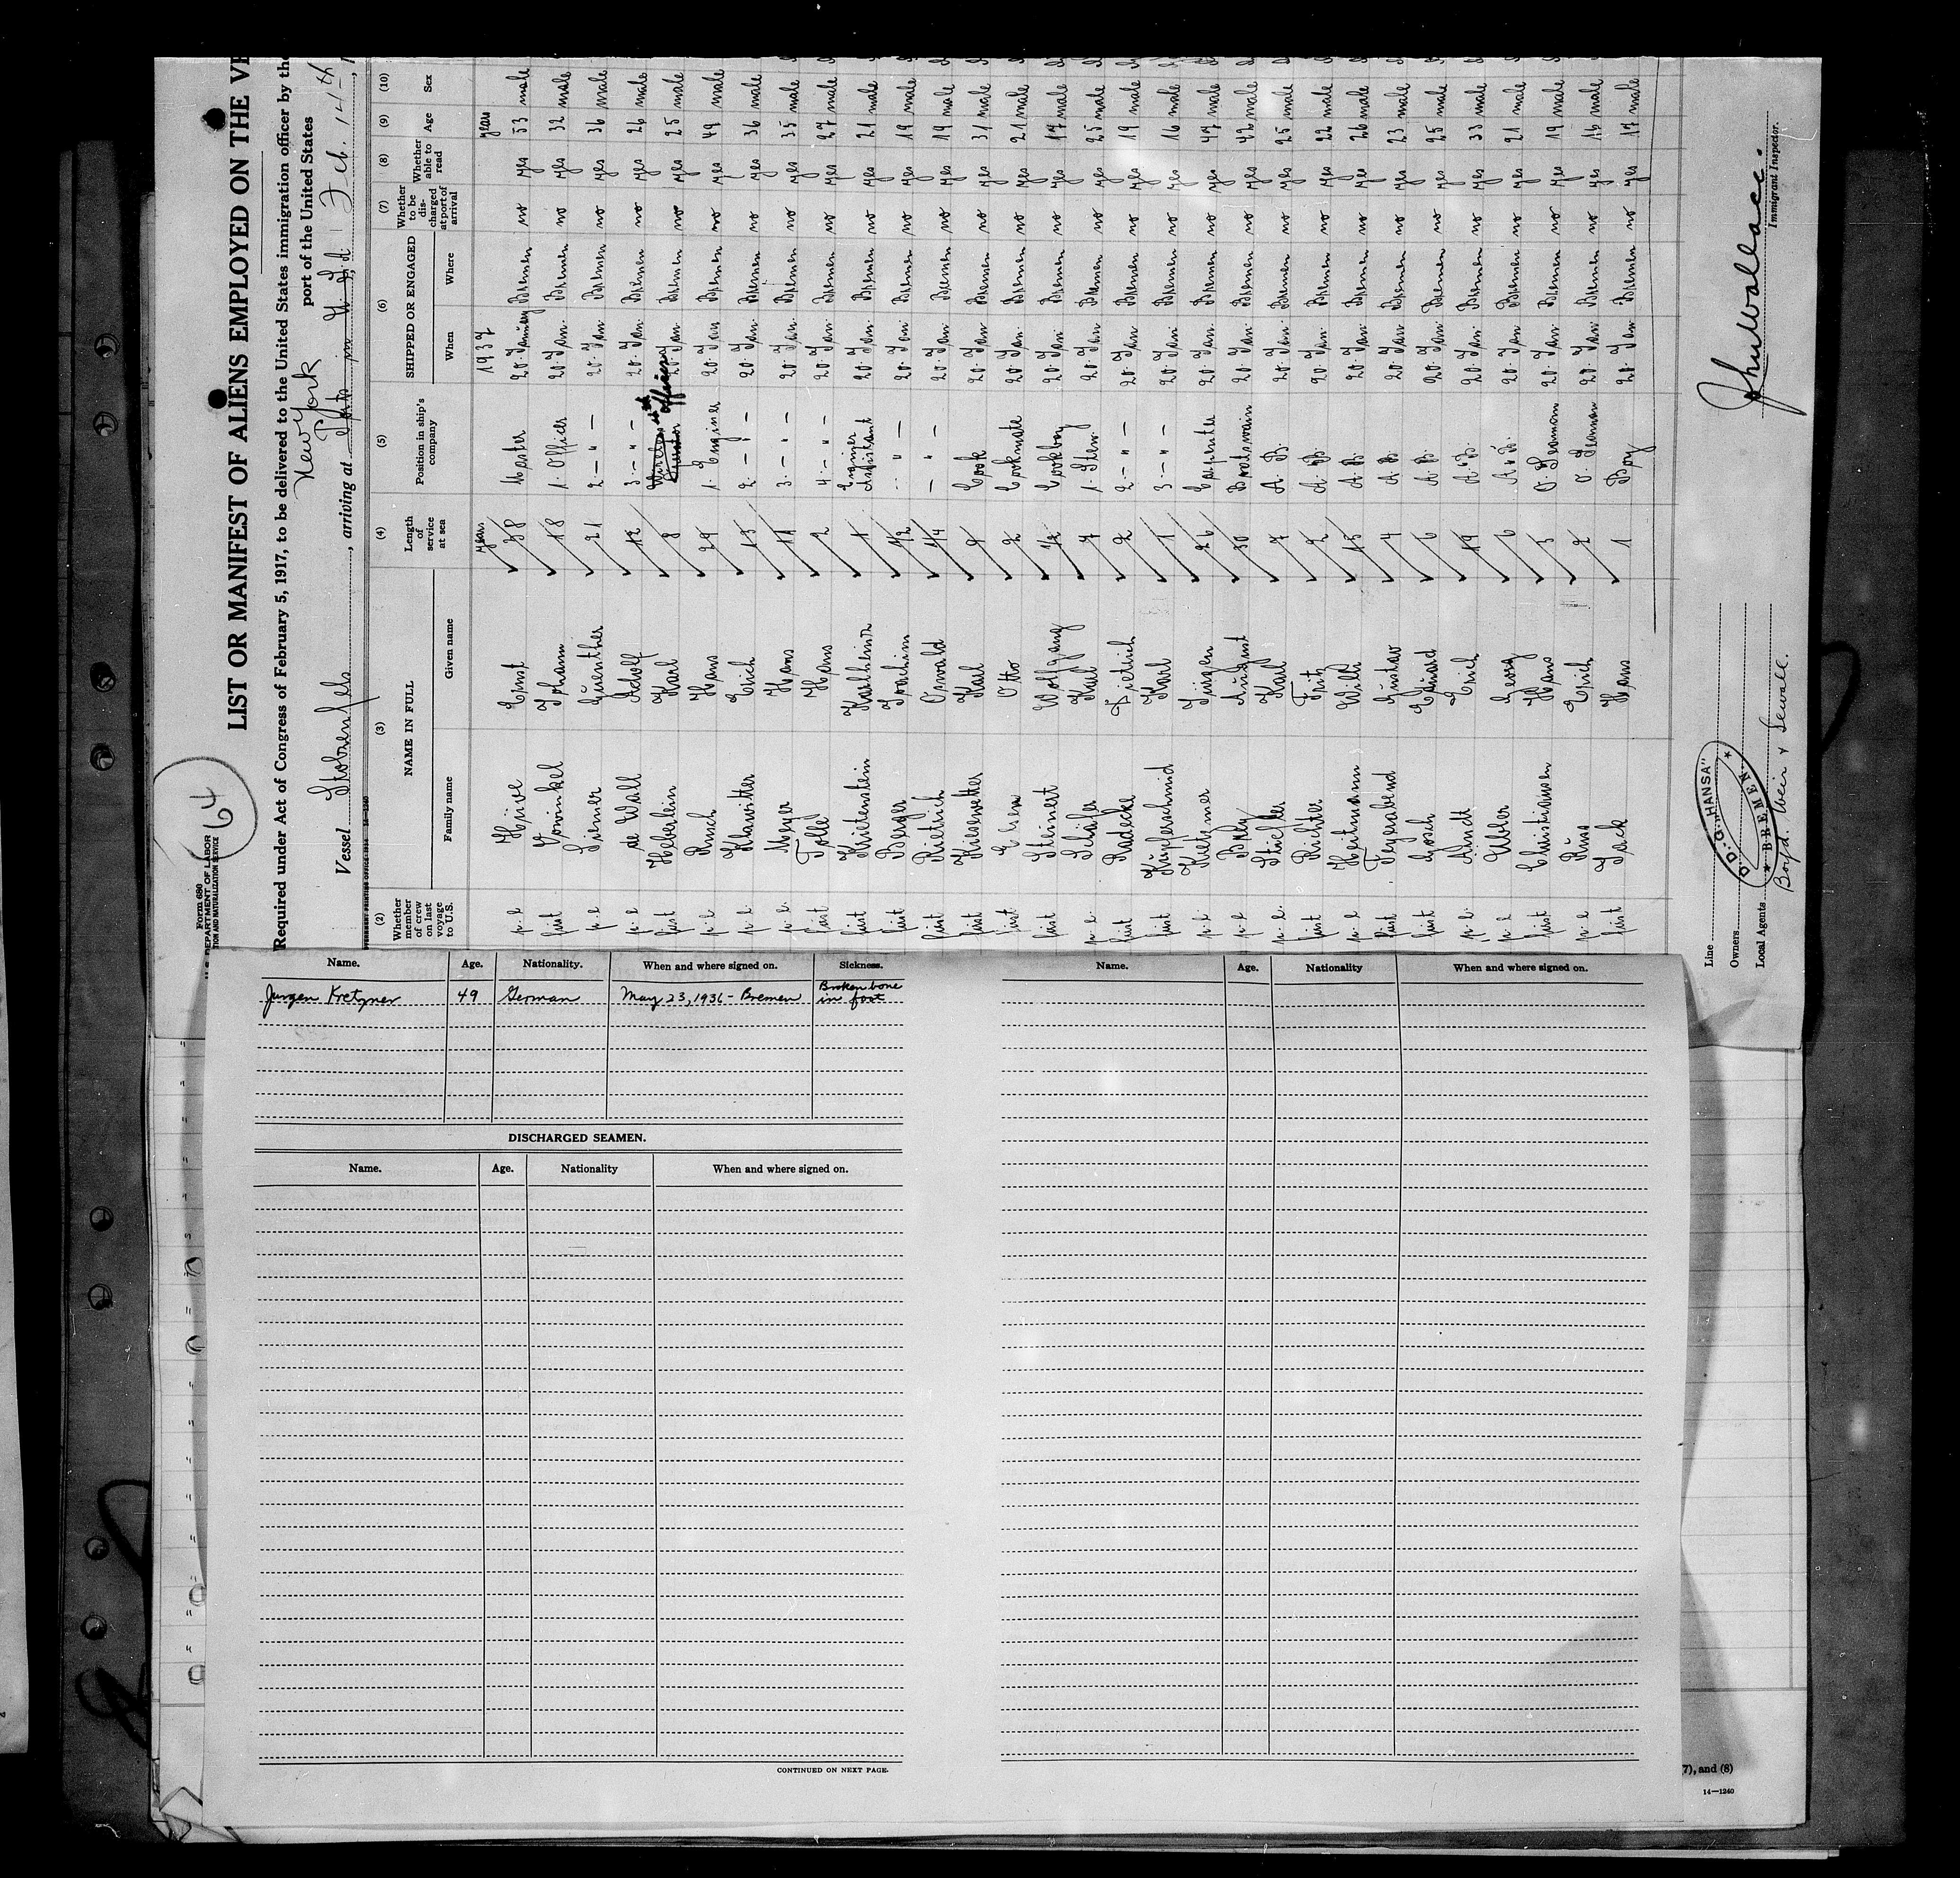 Form 680
U. S. DEPARTMENT OF LABOR
64
LIST OR MANIFEST OF ALIENS EMPLOYED ON THE VE
Required under Act of Congress of February 5, 1917, to be delivered to the United States immigration officer by the
port of the United States
New York
Vessel Stolzenfels, arriving at Feb. 14th
(2) (3) (4) (5) (6) (7) (8) (9) (10)
Whether member of crew on last voyage to U.S. NAME IN FULL Length of service at sea Position in ship's company SHIPPED OR ENGAGED Whether to be discharged at port of arrival Whether able to read Age Sex
Family name Given name When Where
years 1937 years
Ernst 38 Master 20. Bremen no yes 53 male
first Vowinkel Johann 18 1. Officer 20. Jan. Bremen no yes 32 male
Siemer Guenther 21 2. — " — 20. Jan. Bremen no yes 36 male
de Wall Adolf 12 3. — " — 20. Jan. Bremen no yes 26 male
first Heberlein Karl 8 officer 20. Jan. Bremen no yes 25 male
Rusch Hans 29 1. Engineer 20. Jan Bremen no yes 49 male
Klawitter Erich 15 2. — " — 20. Jan. Bremen no yes 36 male
Meyer Hans 11 3. — " — 20. Jan. Bremen no yes 35 male
first Tolle Hans 2 4. — " — 20. Jan. Bremen no yes 27 male
first Karlheinz 1 Engineer Assistant 20. Jan. Bremen no yes 21 male
first Berger Joachim 1/2 — " — 20. Jan Bremen no yes 19 male
first Rietrich Oswald 1/4 — " — 20. Jan. Bremen no yes 19 male
first Kiesewetter Karl 9 Cook 20. Jan Bremen no yes 31 male
first Otto 2 Cookmate 20. Jan. Bremen no yes 21 male
first Steinert Wolfgang 1/2 Cookboy 20. Jan Bremen no yes 17 male
Schäfer Karl 7 1. Stew. 20. Jan Bremen no yes 25 male
first Radecke Dietrich 2 2. — " — 20. Jan Bremen no yes 19 male
first Kupferschmid Karl 1 3. — " — 20. Jan Bremen no yes 16 male
Kretzmer Jürgen 26 Carpenter 20. Jan Bremen no yes 47 male
August 30 Boatswain 20. Jan. Bremen no yes 42 male
Karl 7 A. B. 20. Jan. Bremen no yes 25 male
first Richter Fritz 2 A. B. 20. Jan. Bremen no yes 22 male
Heitmann Willi 15 A B 20. Jan. Bremen no yes 26 male
first Feyerabend Gustav 4 A B 20. Jan. Bremen no yes 23 male
first Gosch Eduard 6 A. B. 20. Jan Bremen no yes 25 male
Arndt Erich 19 A. B. 20. Jan. Bremen no yes 33 male
Georg 6 A. B. 20. Jan Bremen no yes 21 male
first Christiansen Hans 3 O. Seaman 20. Jan. Bremen no yes 19 male
Erich 2 O. Seaman 20. Jan Bremen no yes 16 male
first Jack Hans 1 Boy 20. Jan Bremen no yes 17 male
Line
Owners
Local Agents Boyd, Weir & Sewall.
D. D. G. "HANSA" * BREMEN *
John Wallace.
Immigrant Inspector.
Name. Age. Nationality. When and where signed on. Sickness.
Jurgen Kretzmer 49 German May 23, 1936 - Bremen Broken bone in foot
DISCHARGED SEAMEN.
Name. Age. Nationality When and where signed on.
CONTINUED ON NEXT PAGE.
Name. Age. Nationality When and where signed on.
7), and (8)
14—1240